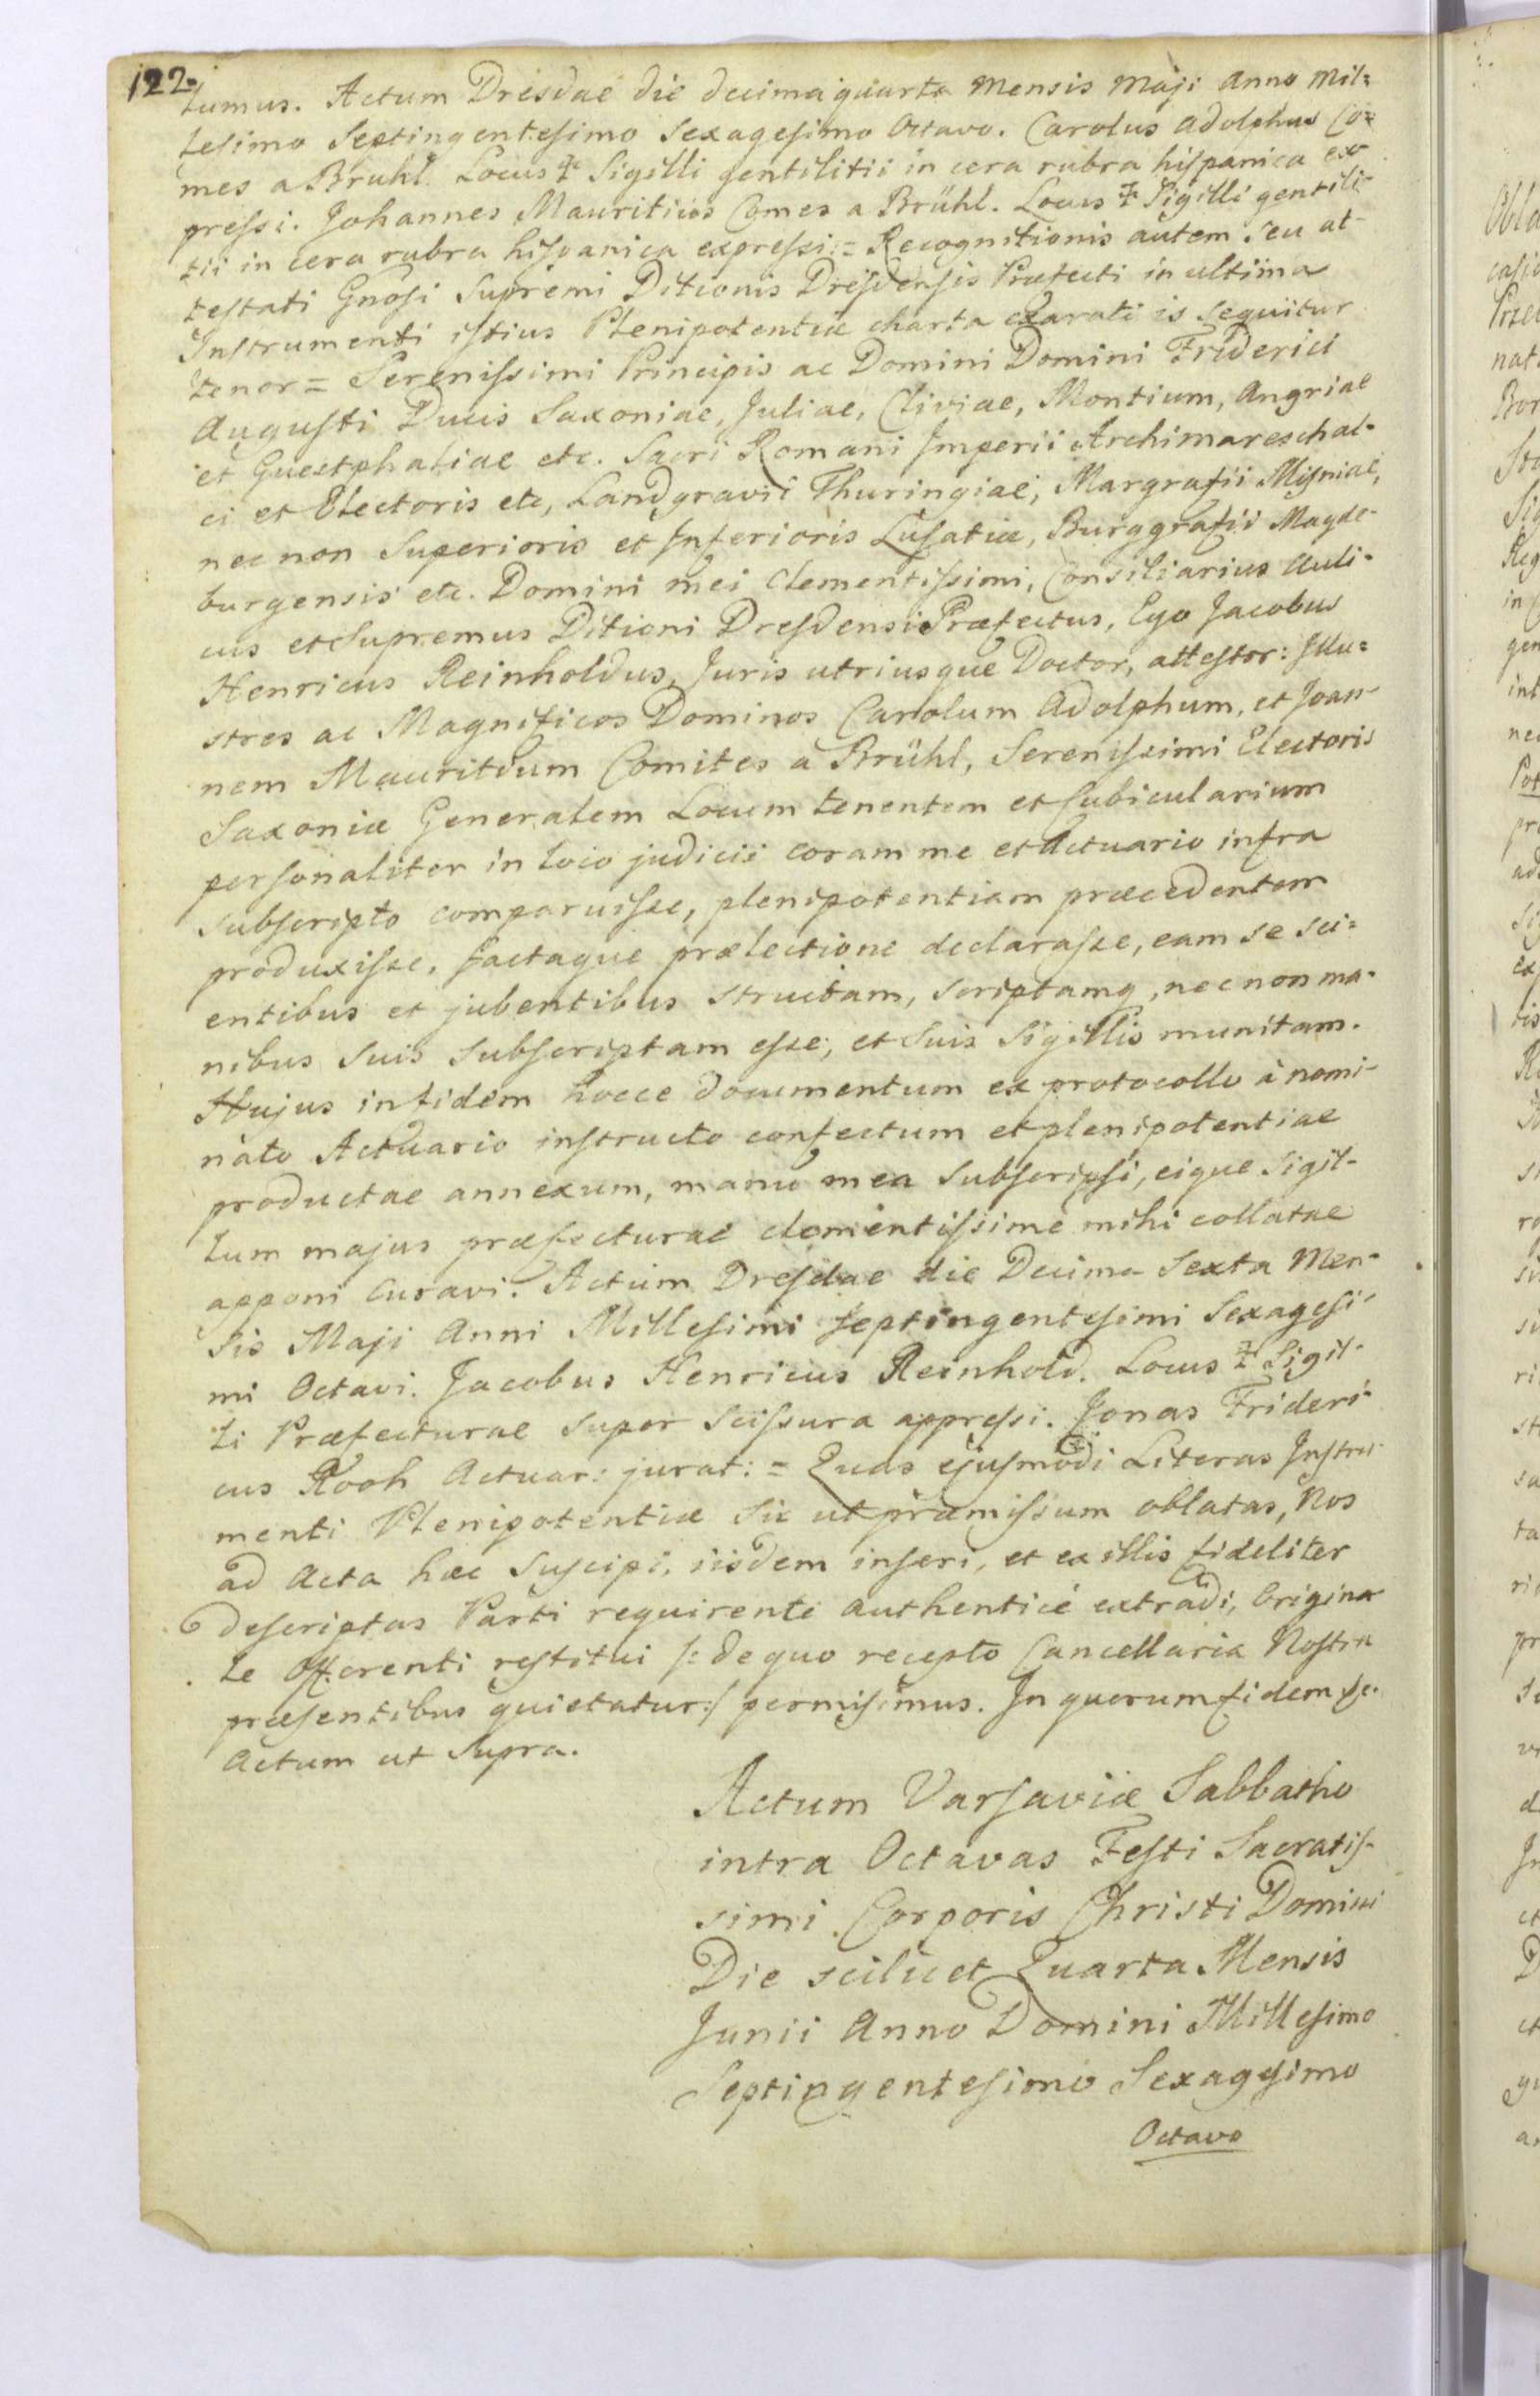 122.
tumus. Actum Dresdae die decima quarta Mensis Maji Anno Mil=
lesimo Septingentesimo Sexagesimo Octavo. Carolus Adolphus Co=
mes a Bruhl. Locus ‡ Sigilli gentilitii in cera rubra hispanica ex
pressi. Johannes Mauritius Comes a Brühl. Locus ‡ Sigilli gentili-
tii in cera rubra hispanica expressi := Recognitionis autem seu at-
testati Gnosi Supremi Ditionis Dresdensis Præfecti in ultima
Instrumenti istius Plenipotentiæ charta exarati is sequitur
tenor = Serenissimi Principis ac Domini Domini Friderici
Augusti Ducis Saxoniae, Juliae, Cliviae, Montium, Angriae
et Guestphaliae etc. Sacri Romani Imperii Archimareschal-
ci et Electoris etc, Landgravii Thuringiae, Margrafii Misniae,
nec non Superioris et Inferioris Lusatiæ, Burggrafii Magde-
burgensis etc. Domini mei Clementissimi, Consiliarius Auli-
cus et Supremus Ditioni Dresdensi Præfectus, Ego Jacobus
Henricus Reinholdus, Juris utriusque Doctor, attestor: Illu=
stres ac Magnificos Dominos Carolum Adolphum, et Joan-
nem Mauritium Comites a Brühl, Serenissimi Electoris
Saxoniæ Generalem Locum tenentem et Cubicularium
personaliter in loco judicii coram me et Actuario infra
subscripto comparuisse, plenipotentiam præcedentem
produxisse, factaque prælectione declarasse, eam se sci=
entibus et jubentibus structam, scriptamq, nec non ma-
nibus suis subscriptam esse, et suis Sigillis munitam.
Hujus in fidem hocce documentum ex protocollo à nomi-
nato Actuario instructo confectum et plenipotentiae
productae annexum, manu mea subscripsi, eique Sigil-
lum majus præfecturae clementissime mihi collatae
apponi curavi. Actum Dresdae die Decima Sexta Men-
sis Maji Anni Millesimi septingentesimi Sexagesi-
mi Octavi. Jacobus Henricus Reinhold. Locus ‡ Sigil-
li Præfecturae super scissura appressi. Jonas Frideri-
cus Kooh Actuar: jurat: = Quas ejusmodi Literas Instru-
menti Plenipotentiæ Sic ut præmissum oblatas, Nos
ad Acta hæc Suscipi, iisdem inseri, et ex illis fideliter
descriptas Parti requirenti authenticé extradi, Origina
le Offerenti restitui /: de quo recepto Cancellaria Nostra
præsentibus quietatur :/ permisimus. In quorum fidem &c.
Actum ut Supra.
Actum Varsaviæ Sabbatho
intra Octavas Festi Sacratis-
simi Corporis Christi Domini
Die scilicet Quarta Mensis
Junii Anno Domini Millesimo
Septingentesimo Sexagesimo
Octavo